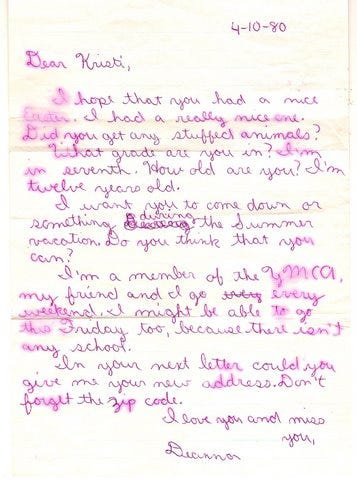 4-10-80
Dear Kristi,
I hope that you had a nice
Easter. I had a really nice one.
Did you get any stuffed animals?
What grade are you in? I'm
in seventh. How old are you? I'm
twelve years old.
I want you to come down or
something during the Summer
vacation. Do you think that you
can?
I'm a member of the YMCA,
my friend and I go every
weekend. I might be able to go
this Friday too, because there isn't
any school.
In your next letter could you
give me your new address. Don't
forget the zip code.
I love you and miss
you,
Deanna